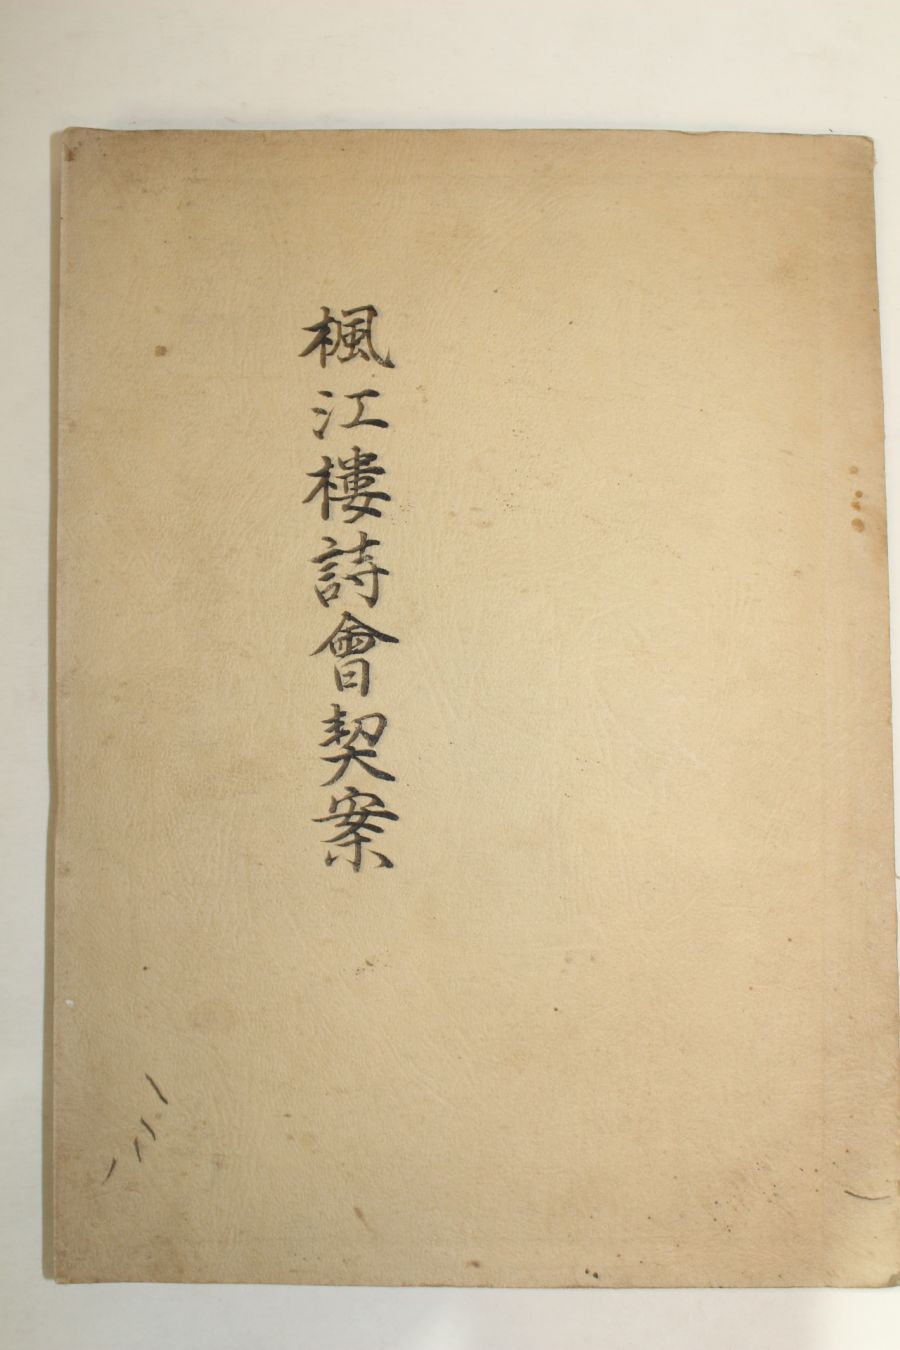 楓江樓詩會契案